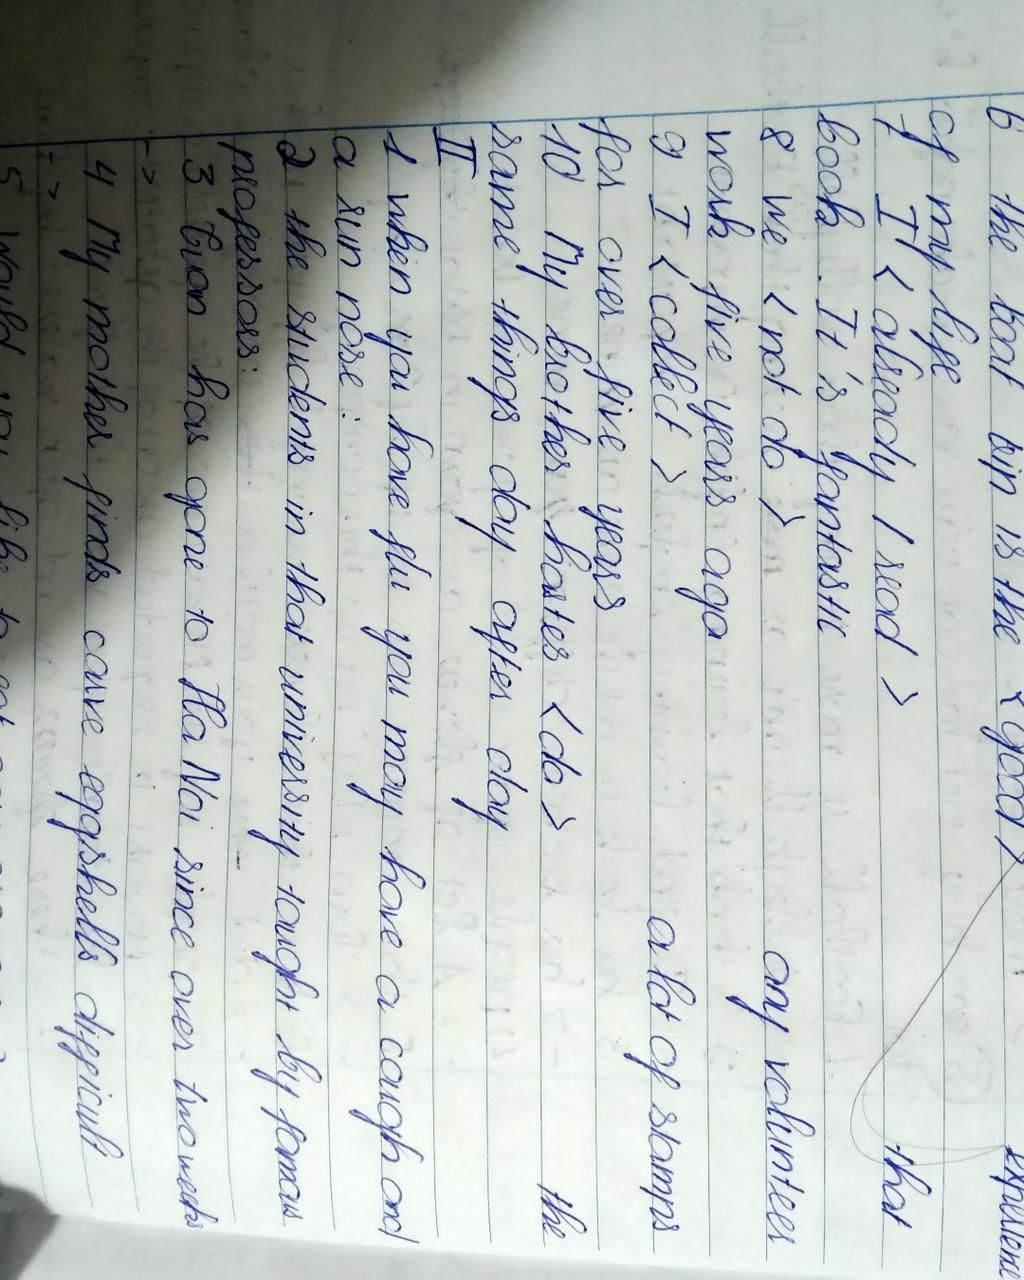 6 the boat trip is the <good> experience
of my life
7 I < already / read > that
book . It's fantastic
8 we < not do > any volunteer
work five years ago
9 I < collect > a lot of stamps
for over five years
10 My brother hates < do > the
same things day after day
II
1 when you have flu you may have a cough and
a run nose :
2 the students in that university taught by famous
professors :
3 has gone to Ha Noi since over two weeks
->
4 My mother finds carve eggshells difficult
->
5 would you like to eat